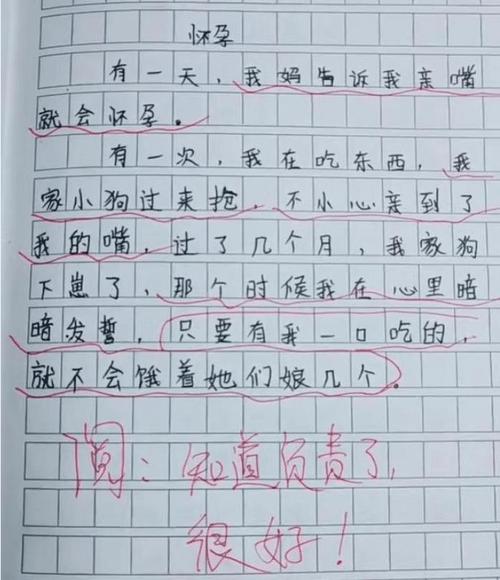 怀孕
有一天，我妈告诉我亲嘴
就会怀孕。
有一次，我在吃东西，我
家小狗过来抢，不小心亲到了
我的嘴，过了几个月，我家狗
下崽了，那个时候我在心里暗
暗发誓，只要有我一口吃的，
就不会饿着她们娘几个。
阅：知道负责了，
很好！